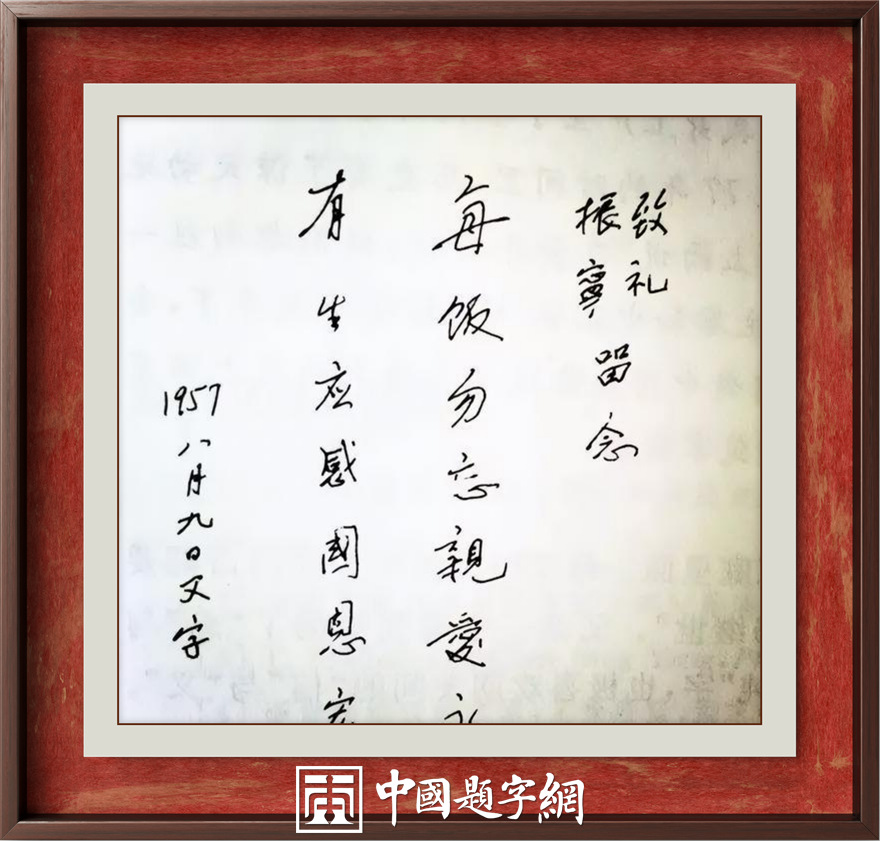 致礼
振寧留念
每飯勿忘親愛
有生应感國恩
1957八月九日父字
中國題字網